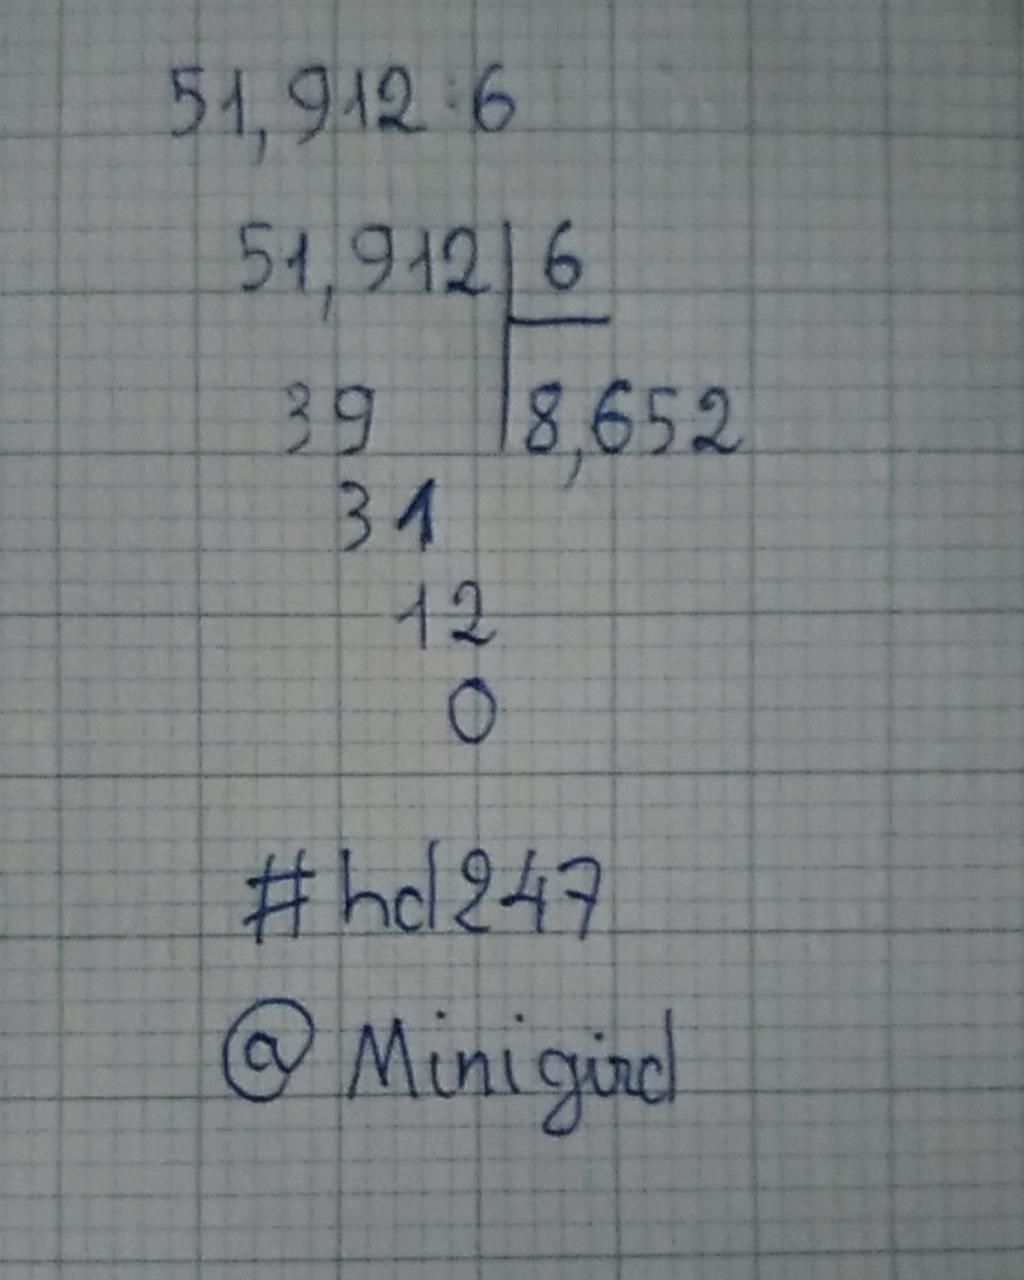 51,912:6
51,912 6
39 8,652
31
12
0
#hd247
@Minigird